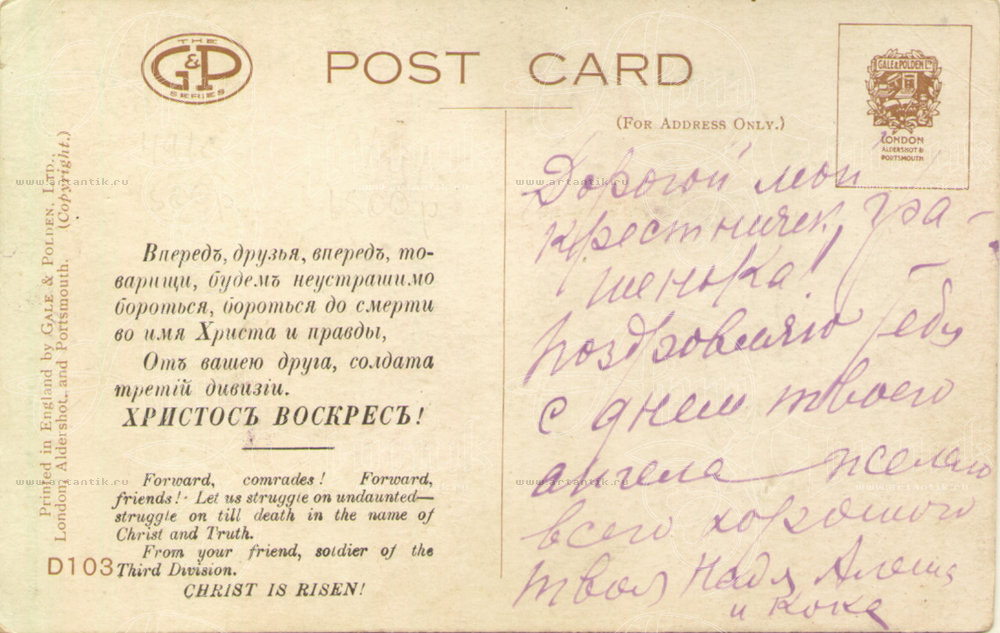 THE
G&P
SERIES
POST CARD
(FOR ADDRESS ONLY.)
GALE & POLDEN LTD
LONDON
ALDERSHOT &
PORTSMOUTH
Printed in England by GALE & POLDEN, LTD.,
London, Aldershot, and Portsmouth. (Copyright.)
www.artantik.ru
www.artantik.ru
www.artantik.ru
Впередъ, друзья, впередъ, то-
варищи, будемъ неустрашимо
бороться, бороться до смерти
во имя Христа и правды,
Отъ вашею друга, солдата
третiй дивизiи.
ХРИСТОСЪ ВОСКРЕСЪ!
Forward, comrades! Forward,
friends! Let us struggle on undaunted—
struggle on till death in the name of
Christ and Truth.
From your friend, soldier of the
Third Division.
CHRIST IS RISEN!
D103
www.artantik.ru
www.artantik.ru
www.artantik.ru
Дорогой мой
крестничек, Гра-
шенька!
поздровляю тебя
с днем твоего
ангела желаю
всего хорошого
твоя Надя Алеша
и Кока